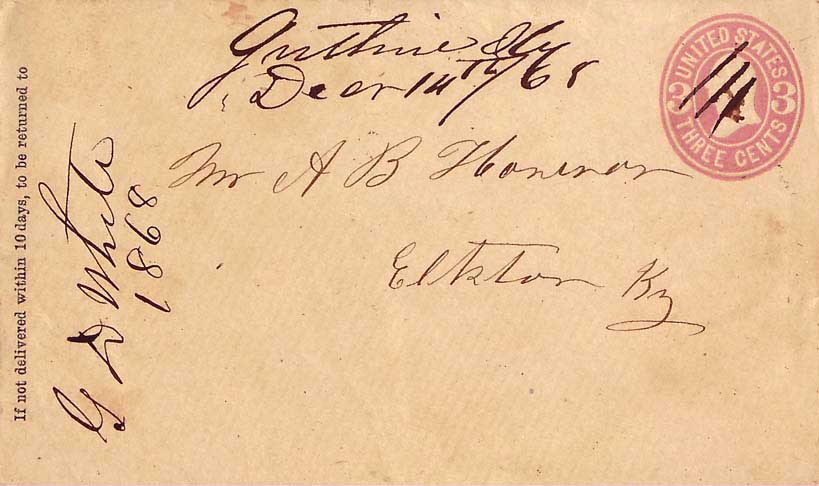 Guthrie Ky
Decr 14th/68
UNITED STATES
3 3
THREE CENTS
Mr A B
Elkton Ky
If not delivered within 10 days, to be returned to
G D White
1868